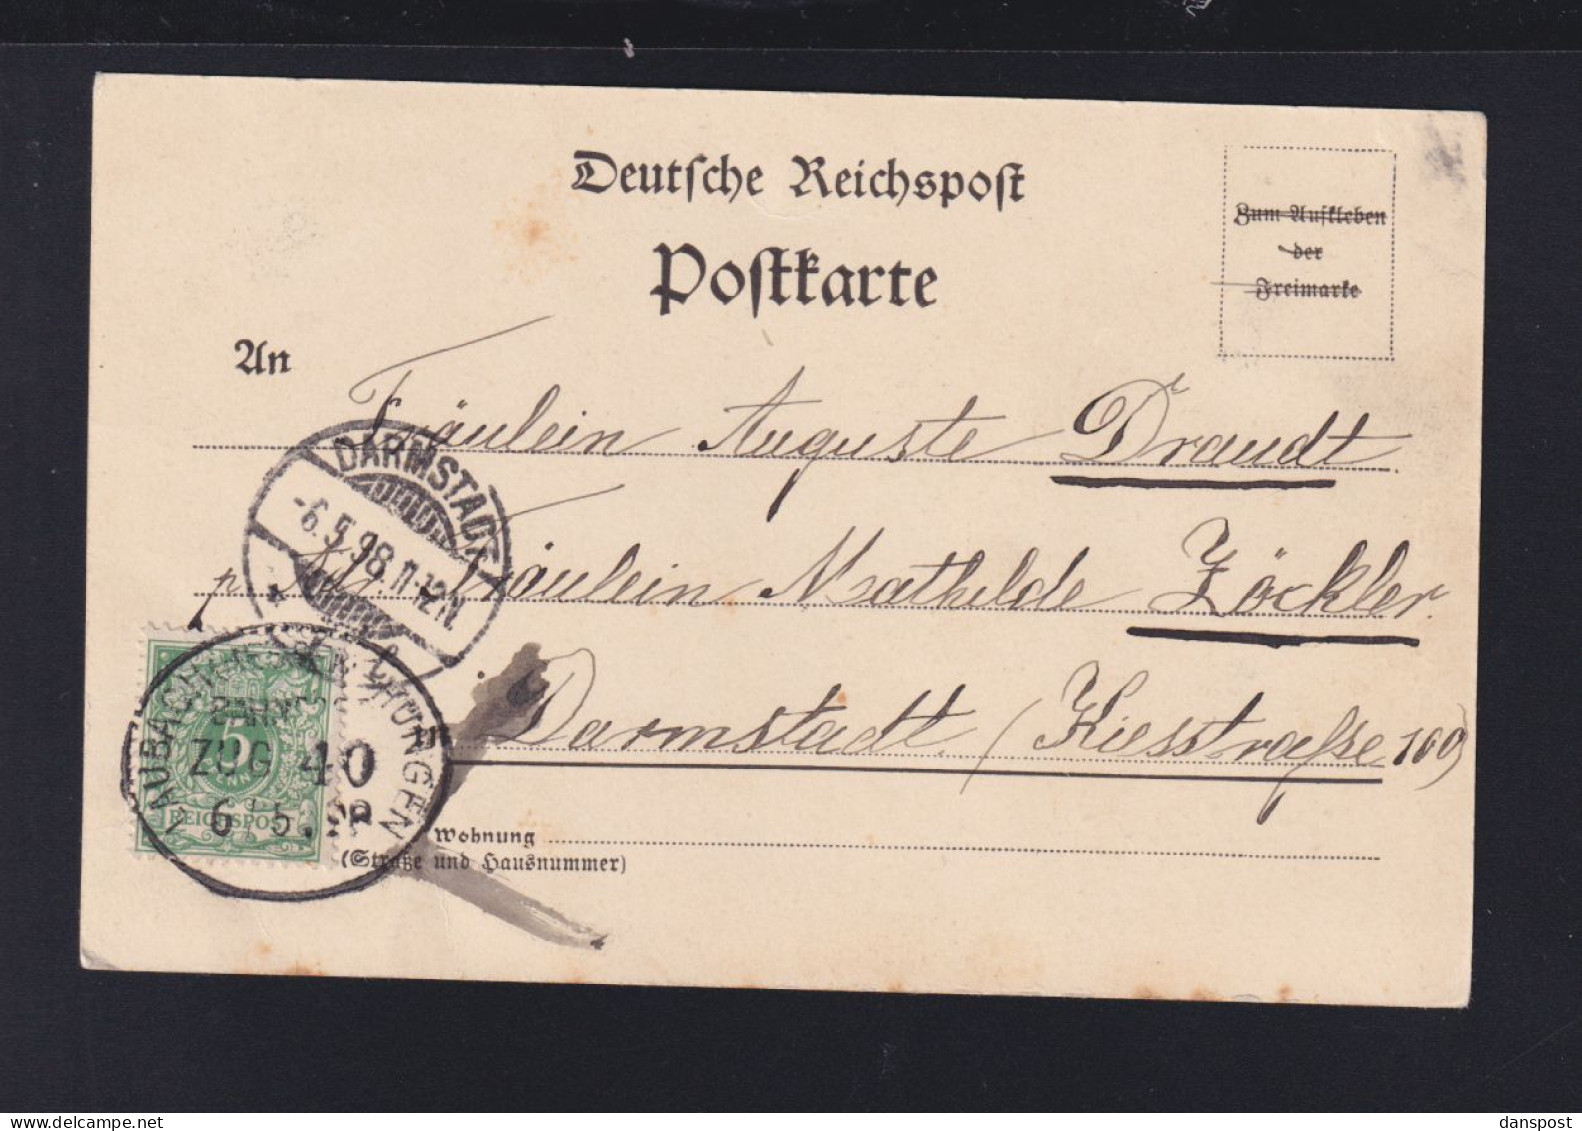 Deutsche Reichspost
Postkarte
Zum Aufkleben
der
Freimarke
An
Fräulein Auguste Draudt
DARMSTADT
-6.5.98.11-12N.
p. Adr. Fräulein Mathilde Zöckler.
Darmstadt (Kiesstraße 100)
LAUBACH HUNGEN
BAHNPOST
ZUG 40
6 5. 98
5
REICHSPOST
Wohnung
(Straße und Hausnummer)
www.delcampe.net
danspost